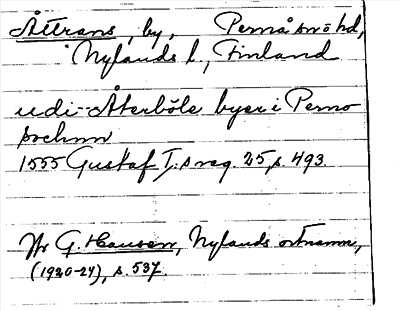 Åttrans, by, Pernå sn o hd,
Nylands l, Finland
udi Återböle byer i Perno
sochnn
1555 Gustaf I:s reg. 25, s. 493.
Hr G. Hausen, Nylands ortnamn,
(1920-24), s. 537.